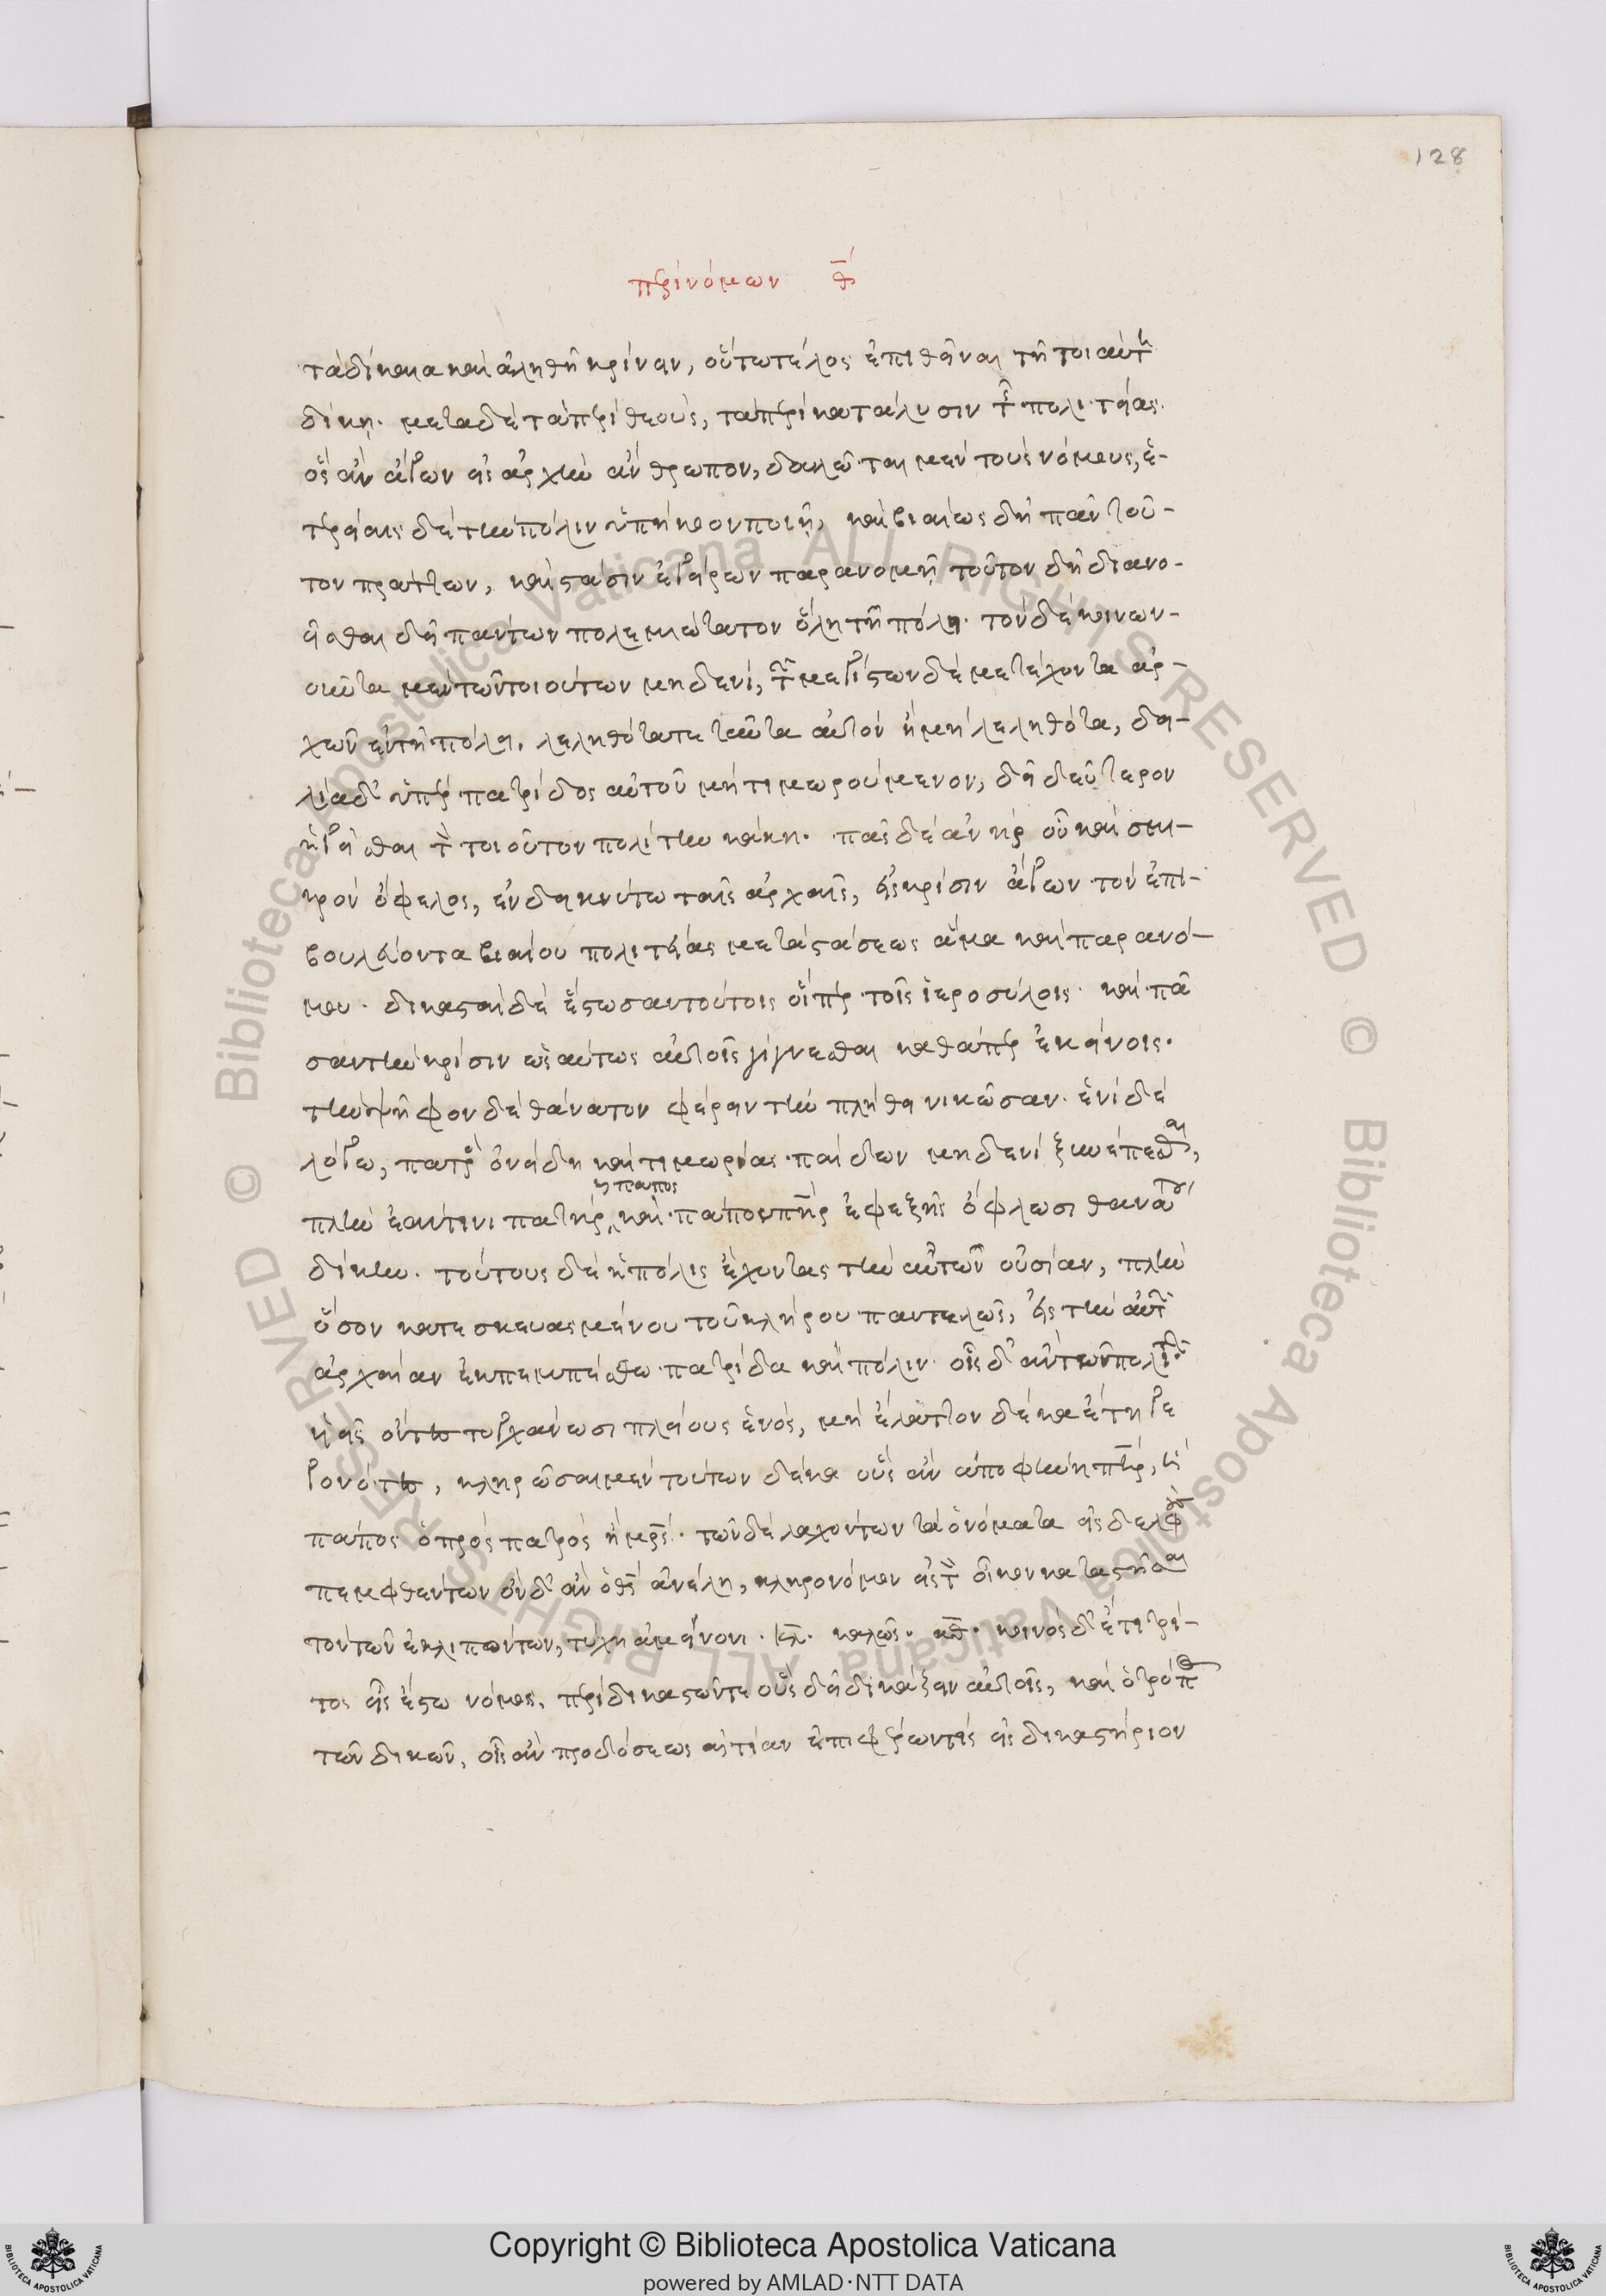 128
περὶ νόμων θ΄
τὰ δίκαια καὶ ἀληθῆ κρίνειν, οὕτω τέλος ἐπιθεῖναι τῇ τοιαύτῃ
δίκῃ. μετὰ δὲ τὰ περὶ θεοὺς, τὰ περὶ κατάλυσιν τῆς πολιτείας.
ὃς ἂν ἄγων εἰς ἀρχὴν ἄνθρωπον, δουλῶται μὲν τοὺς νόμους, ἑ-
τερίαις δὲ τὴν πόλιν ὑπήκοον ποιῇ, καὶ βιαίως δὴ πᾶν τοῦ-
τον πράττων, καὶ στάσιν ἐγείρων παρανομῇ τοῦτον δὴ διανο-
εῖσθαι δεῖ πάντων πολεμιώτατον ὅλῃ τῇ πόλει. τὸν δὲ κοινων-
οῦντα μὲν τῶν τοιούτων μηδενὶ, τῶν μεγίστων δὲ μετέχοντα ἀρ-
χῶν ἐν τῇ πόλει, λεληθότα τε ταῦτα αὐτὸν ἢ μὴ λεληθότα, δει-
λίᾳ δ' ὑπὲρ πατρίδος αὐτοῦ μὴ τιμωρούμενον, δεῖ δεύτερον
ἡγεῖσθαι τὸν τοιοῦτον πολίτην κάκῃ. πᾶς δὲ ἀνὴρ οὗ καὶ σμι-
κρὸν ὄφελος, ἐνδεικνύτω ταῖς ἀρχαῖς, εἰς κρίσιν ἄγων τὸν ἐπι-
βουλεύοντα βιαίου πολιτείας μεταστάσεως ἅμα καὶ παρανό-
μου. δικασταὶ δὲ ἔστωσαν τούτοις οἵπερ τοῖς ἱεροσύλοις. καὶ πᾶ
σαν τὴν κρίσιν ὡσαύτως αὐτοῖς γίγνεσθαι καθάπερ ἐκείνοις.
τὴν ψῆφον δὲ θάνατον φέρειν τὴν πλήθει νικῶσαν. ἑνὶ δὲ
λόγῳ, πατρὸς ὀνείδη καὶ τιμωρίας παίδων μηδενὶ ξυνέπεσθαι,
πλὴν ἐάν τινι πατὴρ καὶ πάπος πατὴρ ἐφεξῆς ὄφλωσι θανάτου
δίκην. τούτους δὲ ἡ πόλις ἔχοντας τὴν αὑτῶν οὐσίαν, πλὴν
ὅσον κατεσκευασμένου τοῦ κλήρου παντελῶς, εἰς τὴν αὑτῶν
ἀρχαίαν ἐκπεμπέσθω πατρίδα καὶ πόλιν. οἷς δ' ἂν τῶν πολιτῶν
ὑεῖς ὄντες τυγχάνωσι πλείους ἑνός, μὴ ἔλαττον δέκα ἔτη γε
γονότες, κληρῶσαι μὲν τούτων δέκα οὓς ἂν ἀποφήνῃ πατὴρ, ἢ
πάπος ὁ πρὸς πατρὸς ἢ μητρός. τῶν δὲ λαχόντων τὰ ὀνόματα εἰς δελφοὺς
πεμφθέντων ὃν δ' ἂν ὁ θεὸς ἀνέλῃ, κληρονόμον εἰς τὸν οἶκον καταστῆσαι
τὸν τῶν ἐκλιπόντων, τύχῃ ἀμείνονι. κλ. καλῶς. αθ. κοινὸς δ' ἔτι τρί-
τος εἷς ἔστω νόμος. περὶ δικαστῶν τε οὓς δεῖ δικάζειν αὐτοῖς, καὶ ὁ τρόπος
τῶν δικῶν, οἷς ἂν προδόσεως αἰτίαν ἐπιφέρων τις εἰς δικαστήριον
Copyright © Biblioteca Apostolica Vaticana
powered by AMLAD·NTT DATA